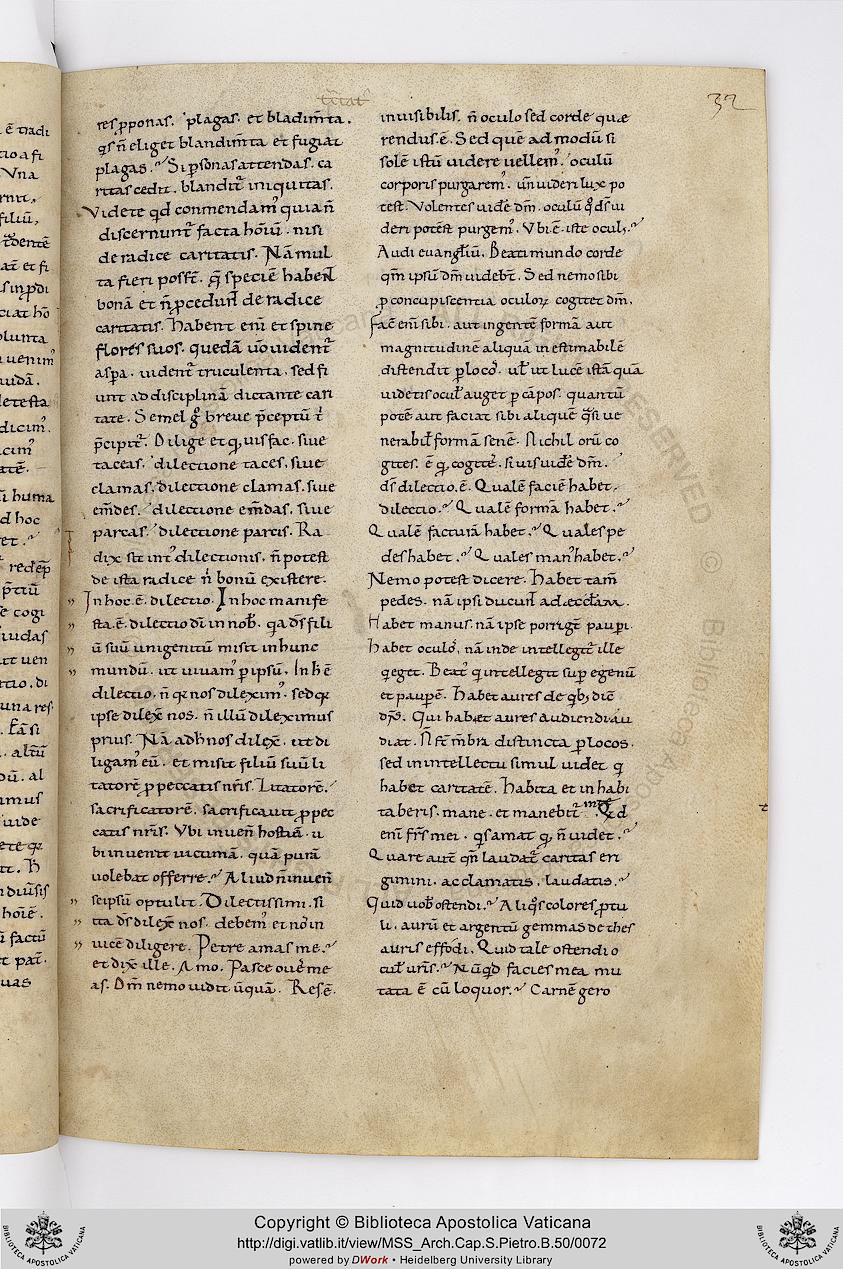 32
res pponas. plagas. et bladim̄ta.
qs n̄ eliget blandim̄ta et fugiat
plagas. Si psonas attendas. ca
ritas cedit. blandit᷑ iniquitas.
Videte qd conmendam᷒ quia n̄
discernunt᷑ facta hoiū. nisi
de radice caritatis. Nā mul
ta fieri posst̄. q̄ speciē habent
bonā et n̄ pcedunt de radice
caritatis. Habent enī et spine
flores suos. quedā uo uident᷑
aspa. uident᷑ truculenta. sed fi
unt ad disciplinā dictante cari
tate. Semel g breue p̄ceptū t᷑
p̄cipit᷑. Dilige et q uis fac. siue
taceas. dilectione taces. siue
clamas. dilectione clamas. siue
em̄des. dilectione em̄das. siue
parcas. dilectione parcis. Ra
dix sit int᷒ dilectionis. n̄ potest
de ista radice n̄ bonū existere.
In hoc.ē. dilectio. In hoc manife
sta.ē. dilectio dī in nob. qa ds fili
ū suū unigenitū misit in hunc
mundū. ut uiuam᷒ p ipsū. In h ē
dilectio. n̄ q nos dilexim᷒. sed q
ipse dilex̄ nos. n̄ illū dileximus
prius. Nā ad h nos dilex̄. ut di
ligam᷒ eū. et misit filiū suū li
tatorē p peccatis nr̄is. Litatorē.
sacrificatorē. sacrificauit p pec
catis nr̄is. Vbi inuen̄ hostiā. u
bi inuenit uictimā. quā purā
uolebat offerre. Aliud n̄ inuen̄
seipsū optulit. Dilectissimi. si
ita ds dilex̄ nos. debem᷒ et nos in
uicē diligere. Petre amas me.
et dix̄ ille. Amo. Pasce oues me
as. Dm̄ nemo uidit ūquā. Res ē.
inuisibilis. n̄ oculo sed corde quæ
rendus.ē. Sed quē ad modū si
solē istū uidere uellem᷒. oculū
corporis purgarem᷒. un̄ uideri lux po
test. Volentes uidē dm̄. oculū q ds ui
deri potest purgem᷒. Vbi ē iste ocul᷒.
Audi euangliū. Beati mundo corde
qm̄ ipsi dm̄ uidebt̄. Sed nemo sibi
p concupiscentia oculoꝝ cogitet dm̄.
facē enī sibi. aut ingentē formā aut
magnitudinē aliquā inestimabilē
distendit p locos. ut ut lucē istā quā
uidet is ocul᷒ auget p cāpos. quantū
potē aut faciat sibi aliquē q̄si ue
nerabilē formā senē. Nichil orū co
gites. ē q cogites. si uis uidē dm̄.
ds dilectio.ē. Qualē faciē habet.
dilectio. Qualē formā habet.
Qualē facturā habet. Quales pe
des habet. Quales man᷒ habet.
Nemo potest dicere. Habet tam̄
pedes. nā ipsi ducunt ad æccl̄am.
Habet manus. nā ipse porrigt̄ paupi.
Habet oculos. nā inde intelligit᷑ ille
q eget. Beat᷒ q intellegit sup egenū
et paupē. Habet aures de qb; dīc
dn̄s. Qui habæt aures audiendi au
diat. N st̄ m̄bra distincta p locos.
sed in intellectu simul uidet q
habet caritatē. Habita et inhabi
taberis. mane. et manebit᷑ in te. Qd
enī frs mei. qs amat q n̄ uidet.
Quare aut qn̄ laudat᷑ caritas eri
gimini. acclamatis. laudatis.
Quid uob ostendi. Aliqs colores ptu
li. aurū et argentū gemmas de thes
auris effodi. Quid tale ostendi o
cul᷒ uris. Nūqd facies mea mu
tata ē cū loquor. Carnē gero
Copyright © Biblioteca Apostolica Vaticana
http://digi.vatlib.it/view/MSS_Arch.Cap.S.Pietro.B.50/0072
powered by DWork • Heidelberg University Library